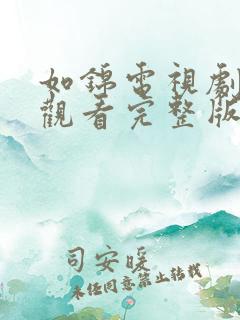 如錦電視劇
觀看完整版
司安暖
未經同意禁止轉載